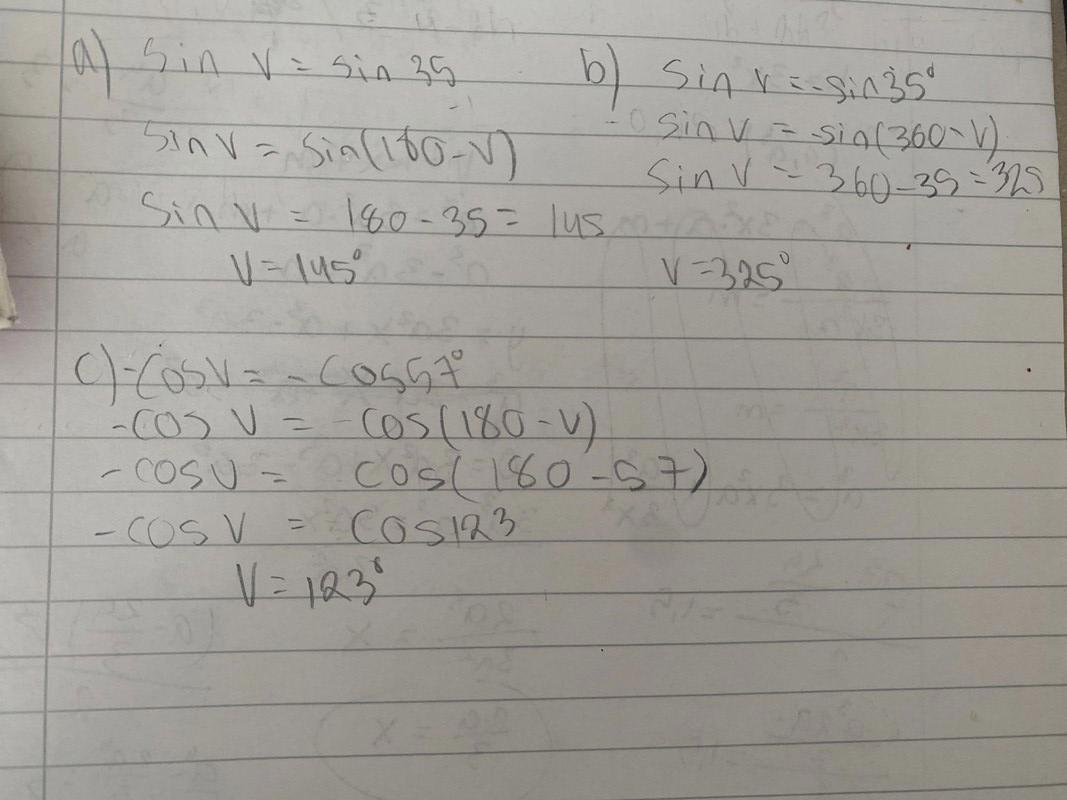 a) sin v = sin 35
sin v = sin(180-v)
sin v = 180-35 = 145
v = 145°
b) sin v = -sin35°
sin v = -sin(360-v)
sin v = 360-35 = 325
v = 325°
c) -cosv = -cos57°
-cos v = -cos(180-v)
-cosv = cos(180-57)
-cos v = cos123
v = 123°